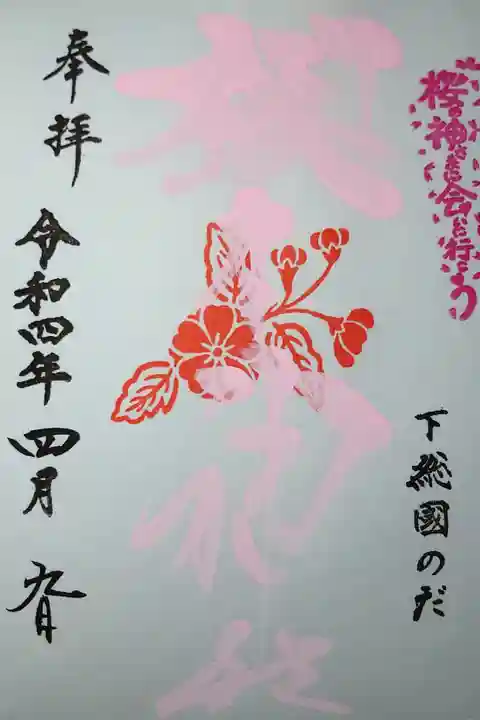 桜の神さまに会いに行こう
下総國のだ
櫻木神社
奉拝
令和四年四月九日